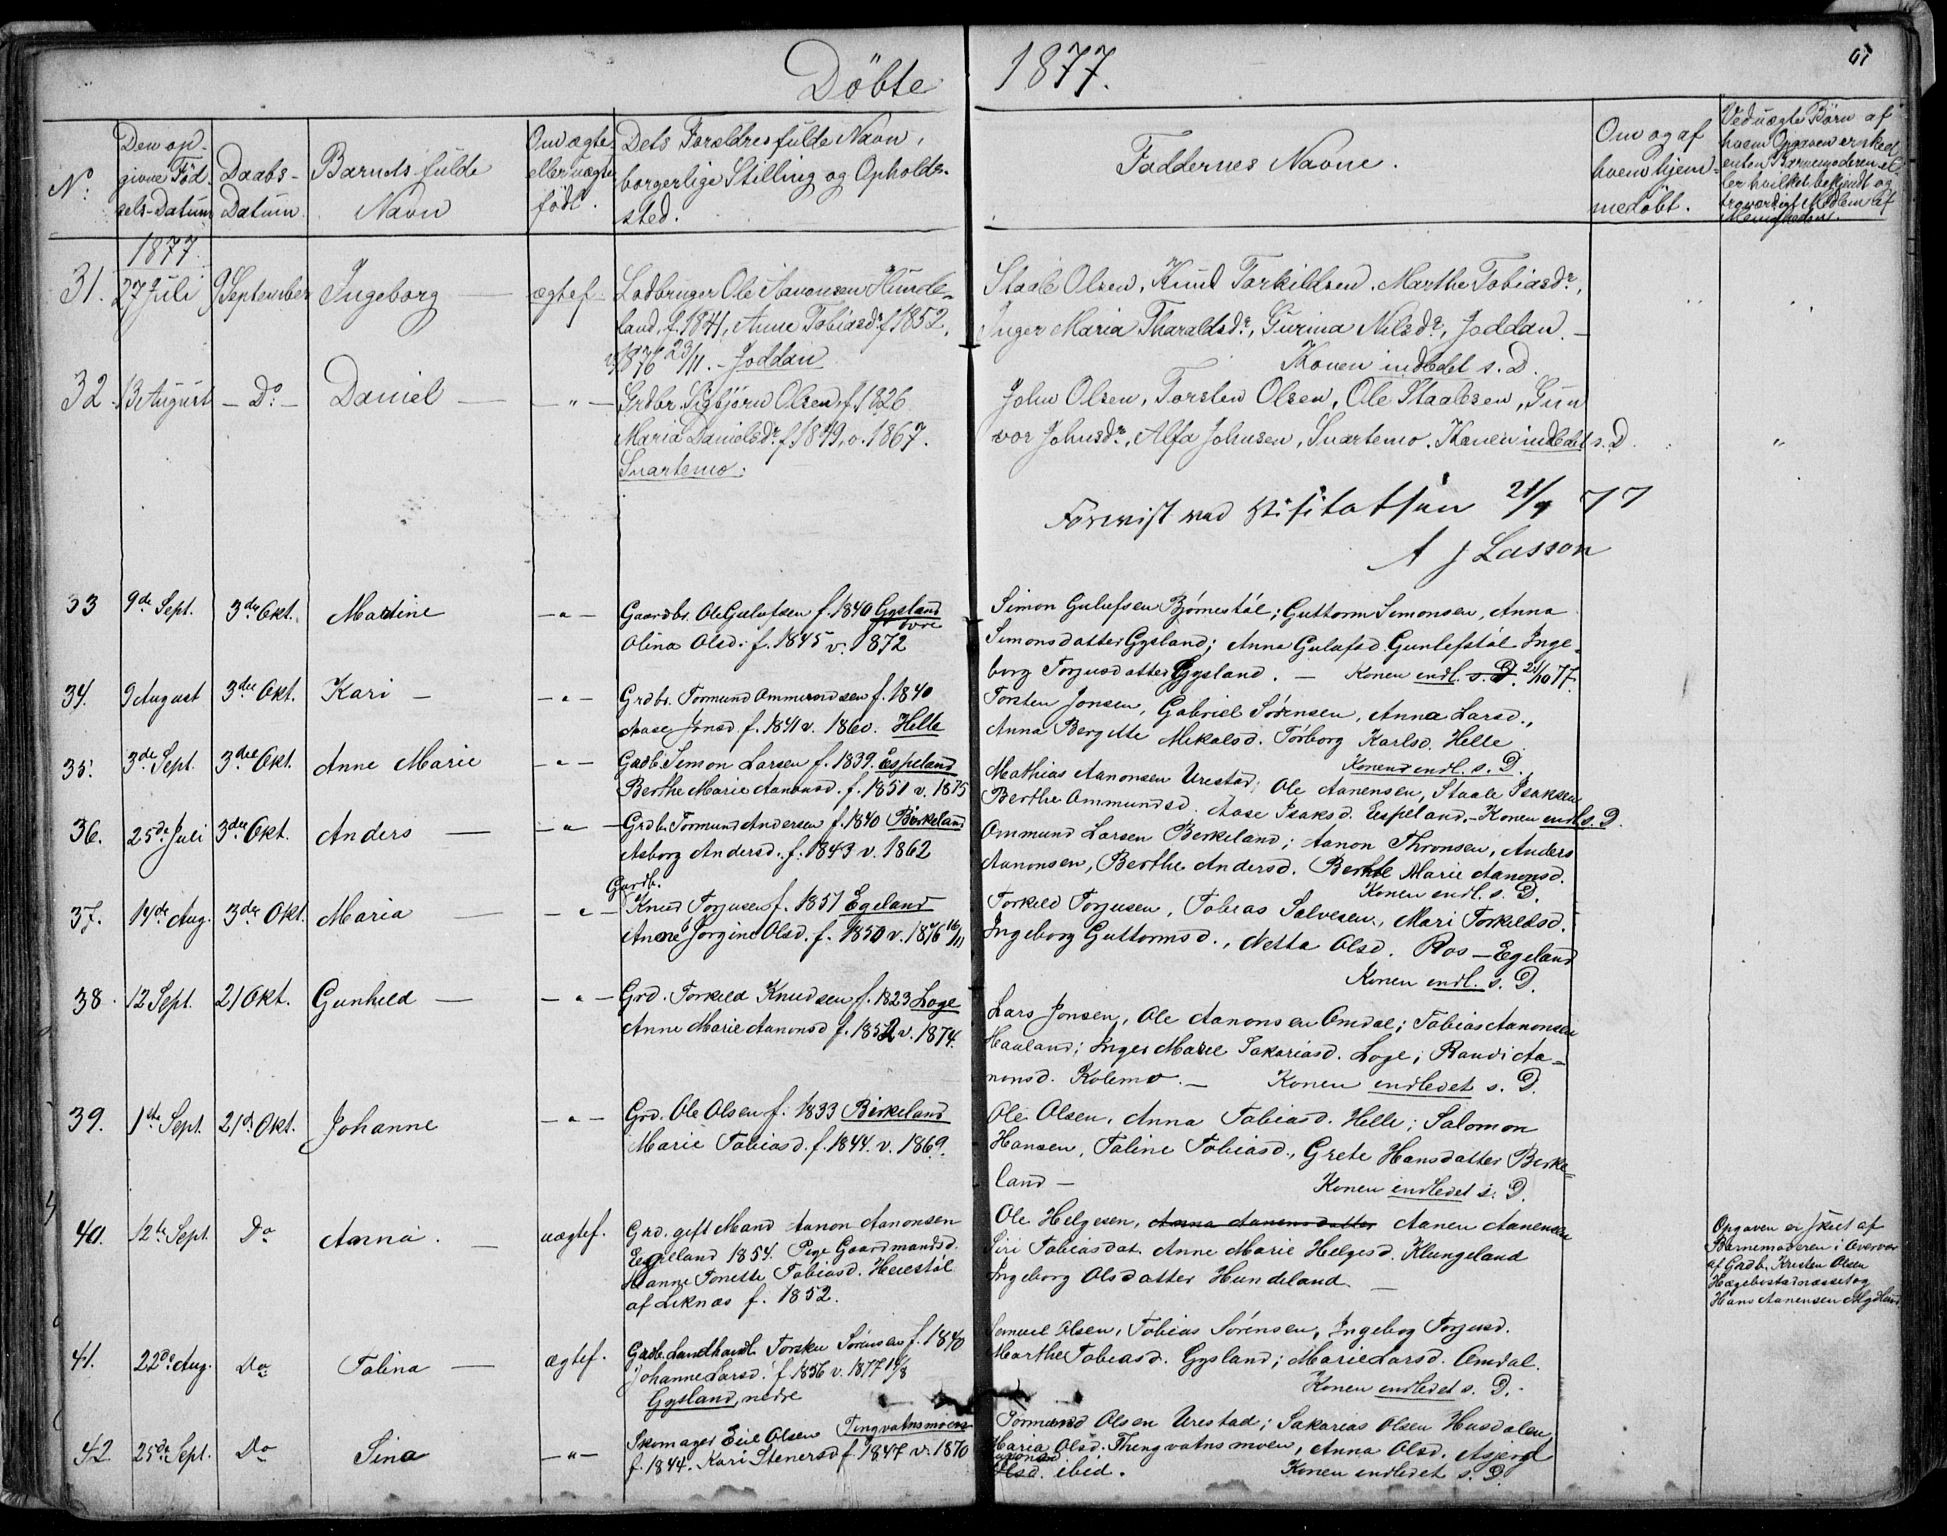 Döbte 1877.
67
No.
Den op-
givne Föd-
sels-Datum
Daabs-
Datum.
Barnets fulde
Navn
Om ægte
eller uægte
født.
Dets Forældres fulde Navn,
borgerlige Stilling og Opholds-
sted.
Faddernes Navne.
Om og af
hvem hjem-
medöbt.
Ved uægte Børn af
hvem Opgaven er skeet
enten Barnemoderen el-
ler hvilket bekjendt og
troværdigt Medlem af
Menigheden.
1877.
31. 27 Juli 9 September Ingeborg ægtef.
Ladbruger Ole Aanonsen Hunde-
land, f. 1841, Anne Tobiasdr f 1852,
v. 1876 23/11. - Joddan
Staale Olsen, Knud Torkildsen, Marthe Tobiasdr,
Inger Maria Tharaldsdr, Gurina Nilsdr, Joddan. -
Konen indledet s. D.
32. 13 August - Do - Daniel - " -
Grdbr. Sigbjörn Olsen f. 1826
Maria Danielsdr f. 1849, v. 1867.
Snartemo.
John Olsen, Torsten Olsen, Ole Staalesen, Gun
vor Johnsdr, Alfa Johnsen, Snartemo. Konen indledet s. D.
Forevist ved Visitatsen 21/9 77
A J Lasson
33 9de Sept. 3die Okt. Martine - " -
Gaardbr. Ole Gulufsen f. 1840 Gysland
övre
Olina Olsd. f. 1845 v. 1872
Simon Gulufsen Bjørnestøl; Guttorm Simonsen, Anna
Simonsdatter Gysland; Anna Gulufsd. Gunlefstøl Inge-
borg Torjusdatter Gysland. - Konen endl. s. D. 21/10 77.
34. 9 August 3die Okt. Kari - " -
Grdbr. Tormund Ommundsen f. 1840
Aase Jonsd. f. 1841 v. 1860. Helle
Torsten Jonsen, Gabriel Sørensen, Anna Larsd.,
Anna Bergitte Mikalsd. Torborg Karlsd. Helle
Konen endl. s. D.
35. 3die Sept. 3die Okt. Anne Marie - " -
Grdb. Simon Larsen f. 1839. Espeland
Berthe Marie Aanonsd. f. 1851 v. 1875
Mathias Aanonsen Urestad; Ole Aanensen, Staale Isaksen
Berthe Ommundsd. Aase Isaksd. Espeland. - Konen endl. s. D.
36. 25de Juli 3die Okt. Anders - " -
Grdb. Tormund Andersen f. 1840 Birkeland
Asborg Andersd. f. 1843 v. 1862
Ommund Larsen Berkeland; Aanon Thronsen, Anders
Aanonsen, Berthe Andersd. Berthe Marie Aanonsd.
Konen endl. s. D.
37. 14de Aug. 3die Okt. Maria - " -
Gardb.
Knud Torjusen f. 1851 Egeland
Anne Jorgine Olsd. f. 1850 v. 1876 16/11
Torkild Torjusen, Tobias Salvesen, Mari Torkildsd.
Ingeborg Guttormsd., Netta Olsd. Ros - Egeland
Konen endl. s. D.
38. 12 Sept. 21 Okt. Gunhild - " -
Grd. Torkild Knudsen f. 1823 Loge
Anne Marie Aanonsd f. 1852 v. 1874.
Lars Jonsen, Ole Aanonsen Omdal; Tobias Aanonsen
Haaland; Inger Marie Sakariasd. Loge; Randi Aa-
nonsd. Kolemo. - Konen endledet s. D.
39. 1ste Sept. 21de Okt. Johanne - " -
Grd. Ole Olsen f. 1833 Birkeland
Marie Tobiasd. f. 1844. v. 1869.
Ole Olsen, Anna Tobiasd. Helle; Salomon
Hansen, Taline Tobiasd., Grete Hansdatter Berke-
land - Konen endledet s. D.
40. 12te Sept. Do Anna. uægtef.
Grd. gift Mand Aanon Aanonsen
Espeland 1854. Pige Gaardmandsd.
Hanne Tonette Tobiasd. Heiestøl
af Liknæs f. 1852.
Ole Helgesen, Anna Aanensdatter Aanen Aanensen
Siri Tobiasdat. Anne Marie Helgesd. Klungeland
Ingeborg Olsdatter Hundeland -
Opgaven er skeet af
Barnemoderen i Overvær
af Grdb. Kristen Olsen
Hægebostadnæsset og
Hans Aanensen Mydland
41. 22de Aug. Do Talina ægtef.
Grdb. Landhandl. Torsten Sørensen f. 1840
Johanne Larsd. f 1856 v. 1877 14/8
Gysland, nedre
Samuel Olsen, Tobias Sørensen, Ingeborg Torjusd.
Marthe Tobiasd. Gysland; Marie Larsd. Omdal.
Konen endledet s. D.
42. 25de Sept. Do Sina - " -
Skomager Eiel Olsen Tingvatnsmoen
f. 1844. Kari Stenersd f 1847 v. 1870
Tormund Olsen Urestad; Sakarias Olsen Husdalen,
Maria Olsd. Thingvatnsmoen, Anna Olsd. Asjerd
Olsd. ibid. Konen endledet s. D.